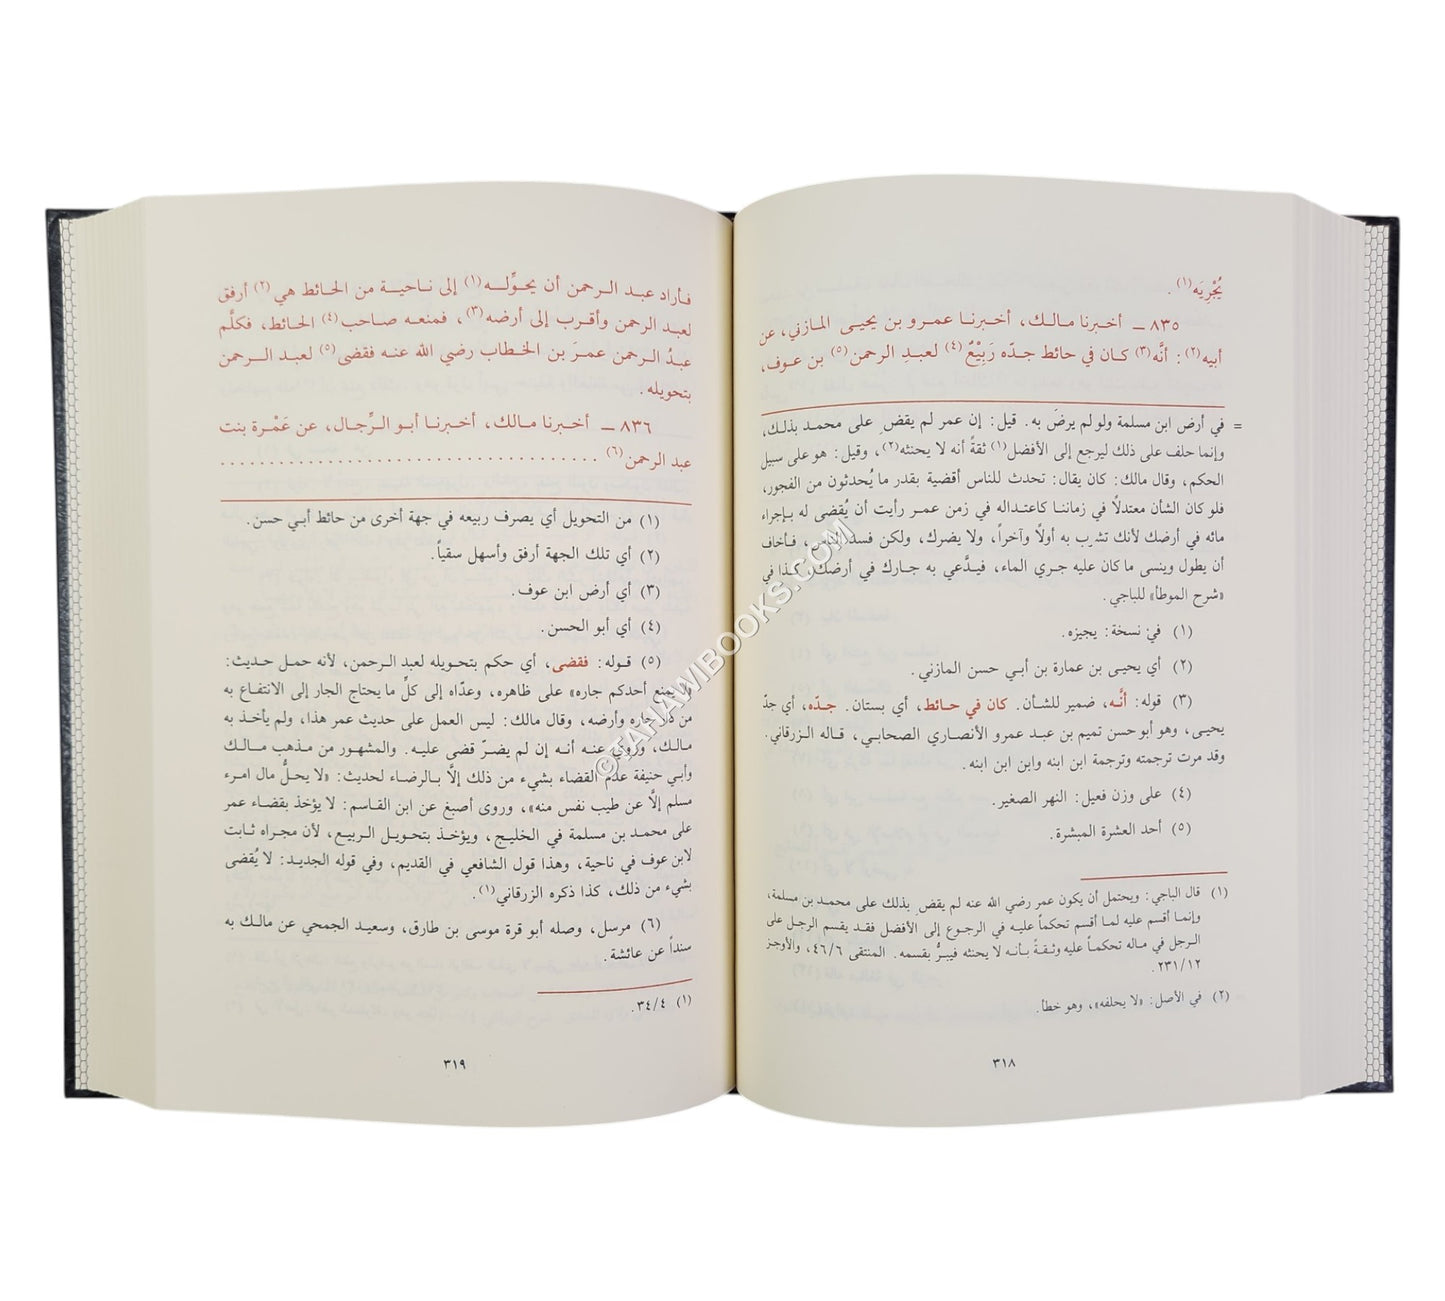 يُجْرِيَه(١) .
٨٣٥ ــ أخبرنا مالك، أخبرنا عمرو بن يحيى المازني، عن
أبيه(٢): أنَّه(٣) كان في حائط جدّه رَبِيْعٌ(٤) لعبدِ الرحمن(٥) بن عوف،
= في أرض ابن مسلمة ولو لم يرضَ به. قيل: إن عمر لم يقضِ على محمد بذلك،
وإنما حلف على ذلك ليرجع إلى الأفضل(١) ثقةً أنه لا يحنثه(٢)، وقيل: هو على سبيل
الحكم، وقال مالك: كان يقال: تحدث للناس أقضية بقدر ما يُحدثون من الفجور،
فلو كان الشأن معتدلاً في زماننا كاعتداله في زمن عمر رأيت أن يُقضى له بإجراء
مائه في أرضك لأنك تشرب به أولاً وآخراً، ولا يضرك، ولكن فسد الناس، فأخاف
أن يطول وينسى ما كان عليه جري الماء، فيدَّعي به جارك في أرضك، كذا في
«شرح الموطأ» للباجي.
(١) في نسخة: يجيزه.
(٢) أي يحيى بن عمارة بن أبي حسن المازني.
(٣) قوله: أنَّه، ضمير للشأن. كان في حائط، أي بستان. جدّه، أي جدّ
يحيى، وهو أبو حسن تميم بن عبد عمرو الأنصاري الصحابي، قاله الزرقاني.
وقد مرت ترجمته وترجمة ابن ابنه وابن ابن ابنه.
(٤) على وزن فعيل: النهر الصغير.
(٥) أحد العشرة المبشرة.
(١) قال الباجي: ويحتمل أن يكون عمر رضي الله عنه لم يقضِ بذلك على محمد بن مسلمة،
وإنما أقسم عليه لما أقسم تحكماً عليه في الرجوع إلى الأفضل فقد يقسم الرجل على
الرجل في ماله تحكماً عليه وثقةً بأنه لا يحنثه فيبرُّ بقسمه. المنتقى ٤٦/٦، والأوجز
٢٣١/١٢.
(٢) في الأصل: «لا يحلفه»، وهو خطأ.
٣١٨
فأراد عبد الرحمن أن يحوِّله(١) إلى ناحية من الحائط هي(٢) أرفق
لعبد الرحمن وأقرب إلى أرضه(٣)، فمنعه صاحب(٤) الحائط، فكلَّم
عبدُ الرحمن عمرَ بن الخطاب رضي الله عنه فقضى(٥) لعبد الرحمن
بتحويله.
٨٣٦ ــ أخبرنا مالك، أخبرنا أبو الرِّجال، عن عَمْرة بنت
عبد الرحمن(٦) . . . . . . . . . . . . . . . . . . . . . . . . . . . . . . . . . . .
(١) من التحويل أي يصرف ربيعه في جهة أخرى من حائط أبي حسن.
(٢) أي تلك الجهة أرفق وأسهل سقياً.
(٣) أي أرض ابن عوف.
(٤) أي أبو الحسن.
(٥) قوله: فقضى، أي حكم بتحويله لعبد الرحمن، لأنه حمل حديث:
«لا يمنع أحدكم جاره» على ظاهره، وعدّاه إلى كلِّ ما يحتاج الجار إلى الانتفاع به
من دار جاره وأرضه، وقال مالك: ليس العمل على حديث عمر هذا، ولم يأخذ به
مالك، وروي عنه أنه إن لم يضرّ قضى عليه. والمشهور من مذهب مالك
وأبي حنيفة عدم القضاء بشيء من ذلك إلَّا بالرضاء لحديث: «لا يحلُّ مال امرء
مسلم إلَّا عن طيب نفس منه»، وروى أصبغ عن ابن القاسم: لا يؤخذ بقضاء عمر
على محمد بن مسلمة في الخليج، ويؤخذ بتحويل الربيع، لأن مجراه ثابت
لابن عوف في ناحية، وهذا قول الشافعي في القديم، وفي قوله الجديد: لا يُقضى
بشيء من ذلك، كذا ذكره الزرقاني(١).
(٦) مرسل، وصله أبو قرة موسى بن طارق، وسعيد الجمحي عن مالك به
سنداً عن عائشة.
(١) ٣٤/٤.
٣١٩
©TAHAWIBOOKS.COM